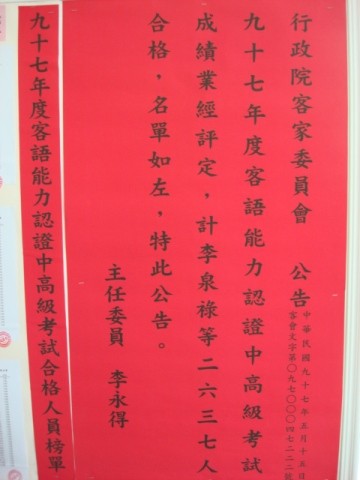 行政院客家委員會　公告
中華民國九十七年五月十五日
客會文字第〇九七〇〇〇四七二二二號
九十七年度客語能力認證中高級考試
成績業經評定，計李泉祿等二六三七人
合格，名單如左，特此公告。
主任委員　李永得
九十七年度客語能力認證中高級考試合格人員榜單